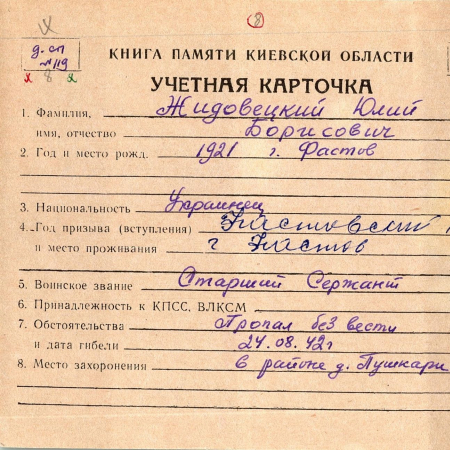 8
д. сп
№ 119
8 2
КНИГА ПАМЯТИ КИЕВСКОЙ ОБЛАСТИ
УЧЕТНАЯ КАРТОЧКА
1. Фамилия, Жидовецкий Юлий
имя, отчество Борисович
2. Год и место рожд. 1921 г. Фастов
3. Национальность Украинец
4. Год призыва (вступления) Фастовский
и место проживания г Фастов
5. Воинское звание Старший Сержант
6. Принадлежность к КПСС, ВЛКСМ
7. Обстоятельства Пропал без вести
и дата гибели 24.08.42г
8. Место захоронения в районе д. Пушкари